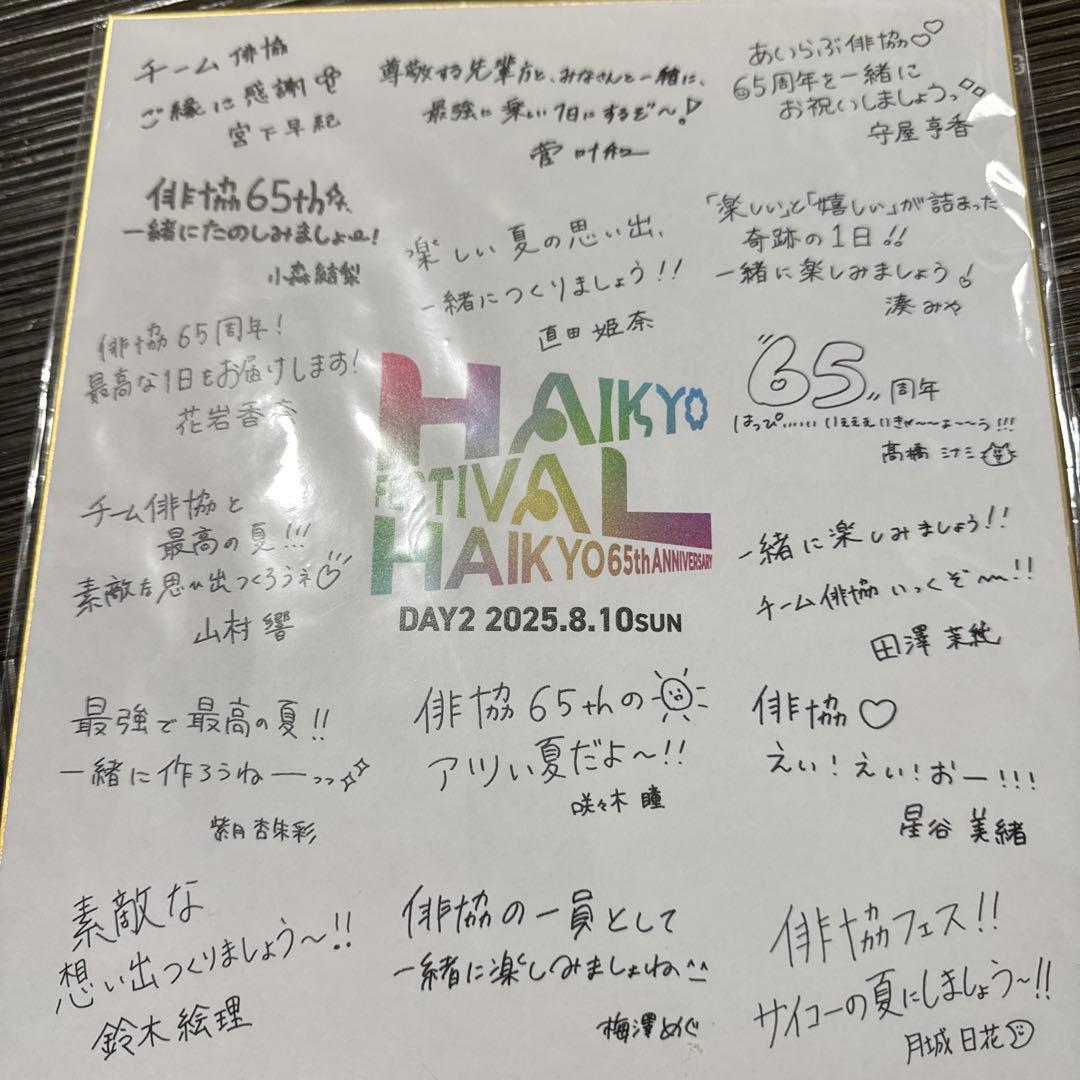 チーム俳協
ご縁に感謝
宮下早紀
尊敬する先輩方と、みなさんと一緒に、
最強に楽しい1日にするぞ〜!
菅叶和
あいらぶ俳協♡♡
65周年を一緒に
お祝いしましょうっ
守屋亨香
俳協65th
一緒にたのしみましょー!
小森結梨
楽しい夏の思い出、
一緒につくりましょう!!
直田姫奈
「楽しい」と「嬉しい」が詰まった
奇跡の1日!!
一緒に楽しみましょう!
湊みや
俳協65周年!
最高な1日をお届けします!
花岩香奈
"65"周年
はっぴ……いいえええいきゃ〜〜ょ〜〜う!!!
高橋ミナミ
HAIKYO
FESTIVAL
HAIKYO65thANNIVERSARY
DAY2 2025.8.10SUN
チーム俳協と
最高の夏!!!
素敵な思い出つくろうネ♡
山村響
一緒に楽しみましょう!!
チーム俳協いっくぞ〜!!
田澤茉純
最強で最高の夏!!
一緒に作ろうねーっっ
紫月杏朱彩
俳協65thの
アツい夏だよ〜!!
咲々木瞳
俳協♡
えい!えい!おー!!!
星谷美緒
素敵な
想い出つくりましょう〜!!
鈴木絵理
俳協の一員として
一緒に楽しみましょね^^
梅澤めぐ
俳協フェス!!
サイコーの夏にしましょう〜!!
月城日花